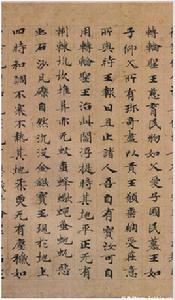 轉輪聖王慈育民物如父愛子國民慕王如
子仰父所有珍奇盡以貢王願垂納受在意
所與時王報曰且止諸人吾自有寶汝可自
用轉輪聖王治此閻浮提時其地平正无有
荊棘坑坎堆阜亦无蚊虻蜂蠍蠅蚤蛇蚖惡
虫石沙瓦礫自然沉没金銀寶玉現於地上
四時和調不寒不熱其地柔耎无有塵穢如